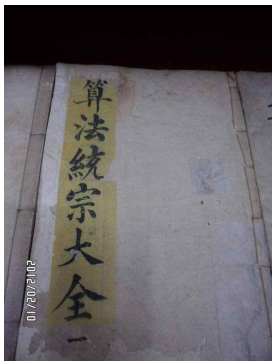 算法統宗大全 一
2012/02/01